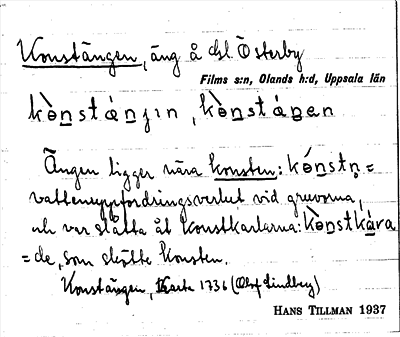 Konstängen, äng å dsl Österby
Films s:n, Olands h:d, Uppsala län
kòn̲stán̲ȷın, kòn̲stán̲en
Ängen ligger nära konsten: kónstn̥ =
vattenuppfordringsverket vid gruvorna,
och var slåtta åt konstkarlarna: kòn̲stkára
= de, som skötte konsten.
Konstängen, Karta 1736 (Olof Lindberg)
HANS TILLMAN 1937